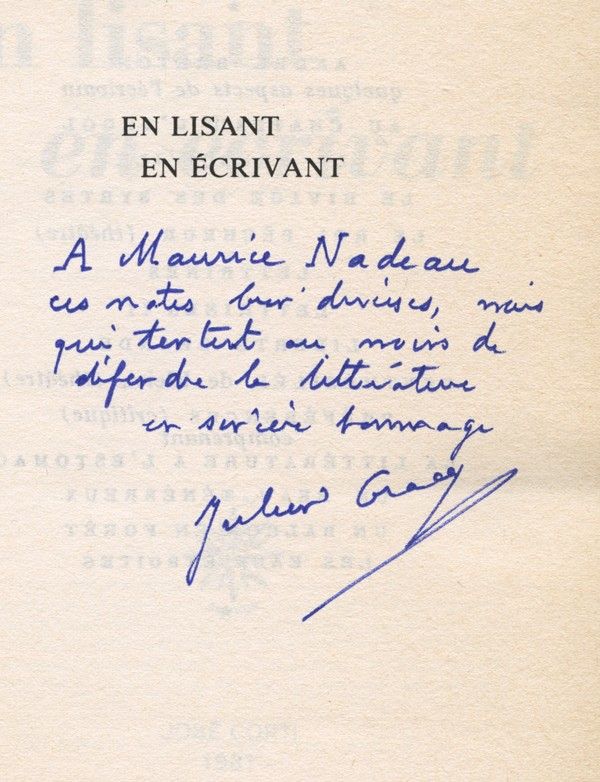 EN LISANT
EN ÉCRIVANT
A Maurice Nadeau
ces notes bien diverses, mais
qui tentent au moins de
défendre la littérature
en sincère hommage
Julien Gracq